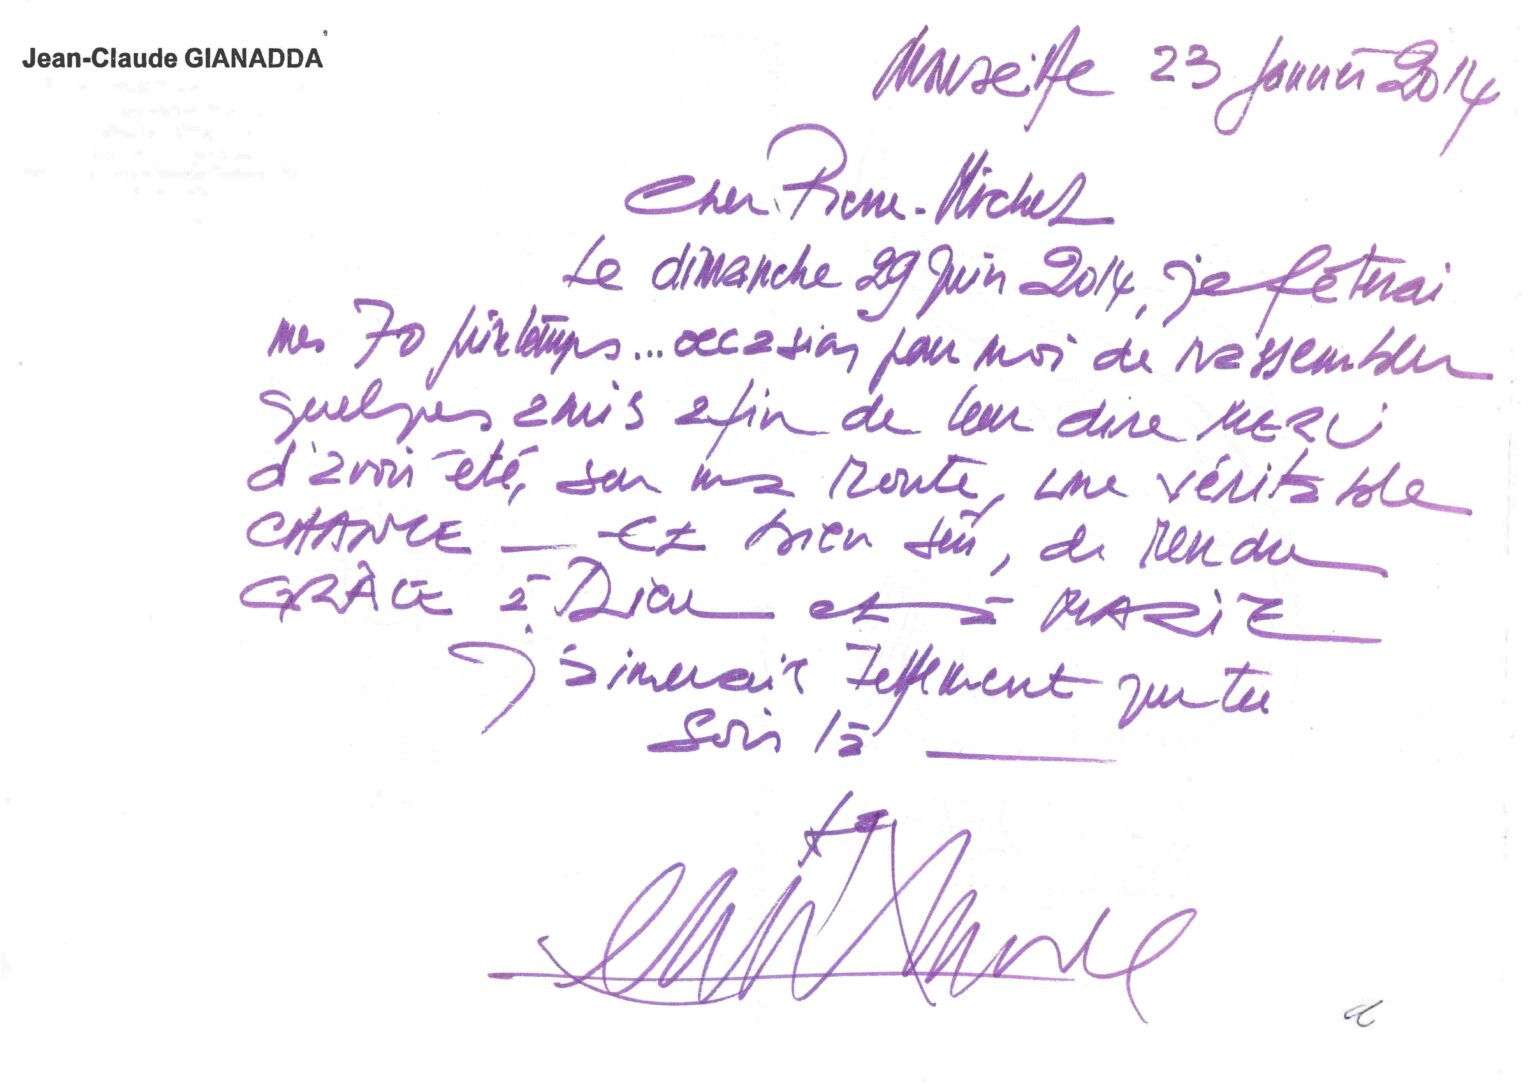 Jean-Claude GIANADDA
Marseille 23 Janvier 2014
Cher Pierre-Michel
Le dimanche 29 Juin 2014, je fêterai
mes 70 printemps... occasion pour moi de rassembler
quelques amis afin de leur dire MERCI
d'avoir été, sur ma route, une véritable
CHANCE — Et bien sûr, de rendre
GRÂCE à Dieu et à MARIE
J'aimerais Tellement que tu
sois là —